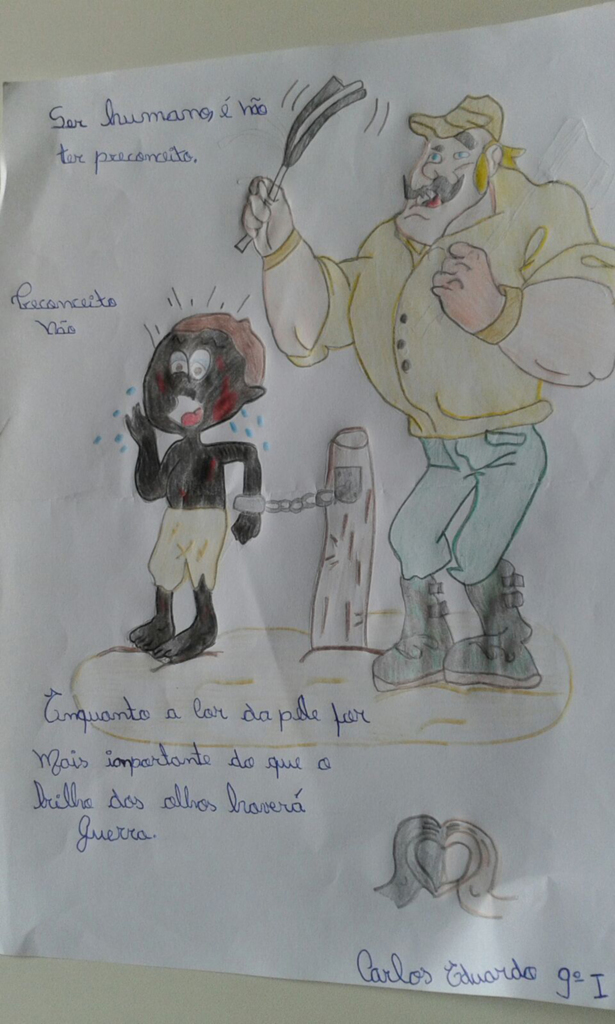 Ser humano, é não
ter preconceito.
Preconceito
Não
Enquanto a cor da pele for
Mais importante do que o
brilho dos olhos haverá
Guerra.
Carlos Eduardo 9º I